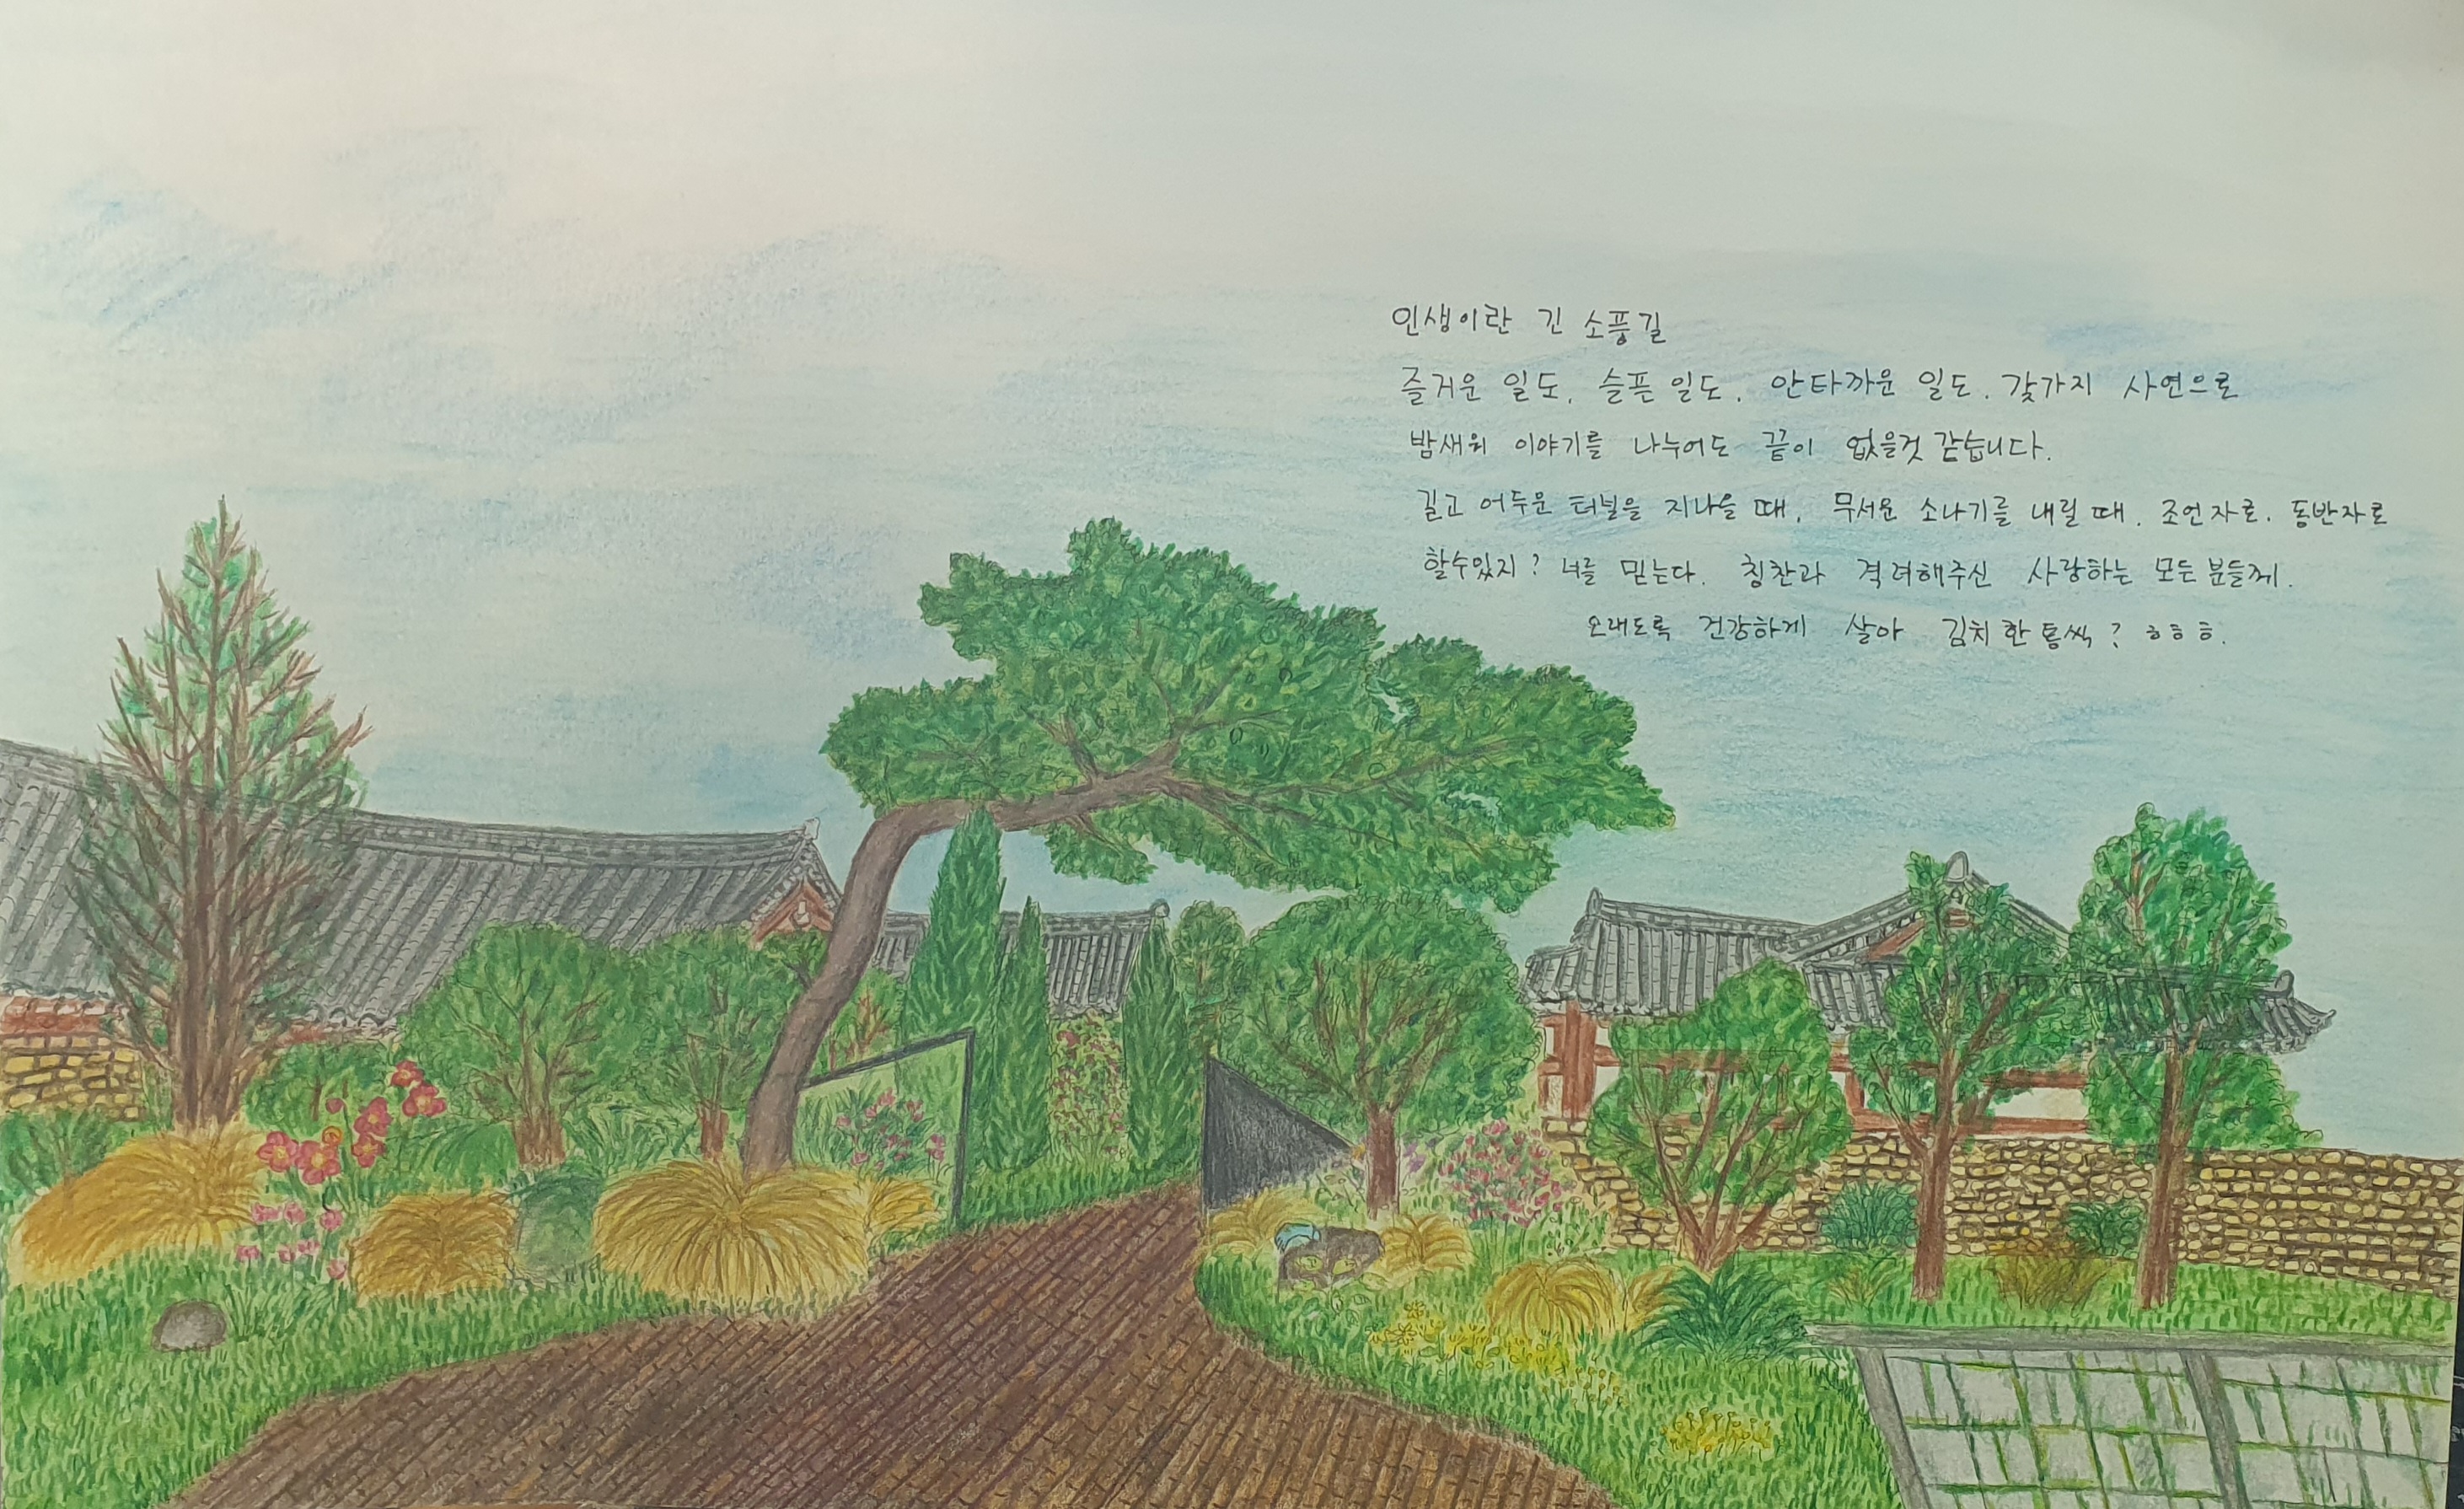 인생이란 긴 소풍길
즐거운 일도, 슬픈 일도, 안타까운 일도, 갖가지 사연으로
밤새워 이야기를 나누어도 끝이 없을것 같습니다.
길고 어두운 터널을 지나올 때, 무서운 소나기를 내릴 때, 조언자로, 동반자로
할수있지? 너를 믿는다. 칭찬과 격려해주신 사랑하는 모든 분들께.
오래도록 건강하게 살아 김치 한통씩? ㅎㅎㅎ.